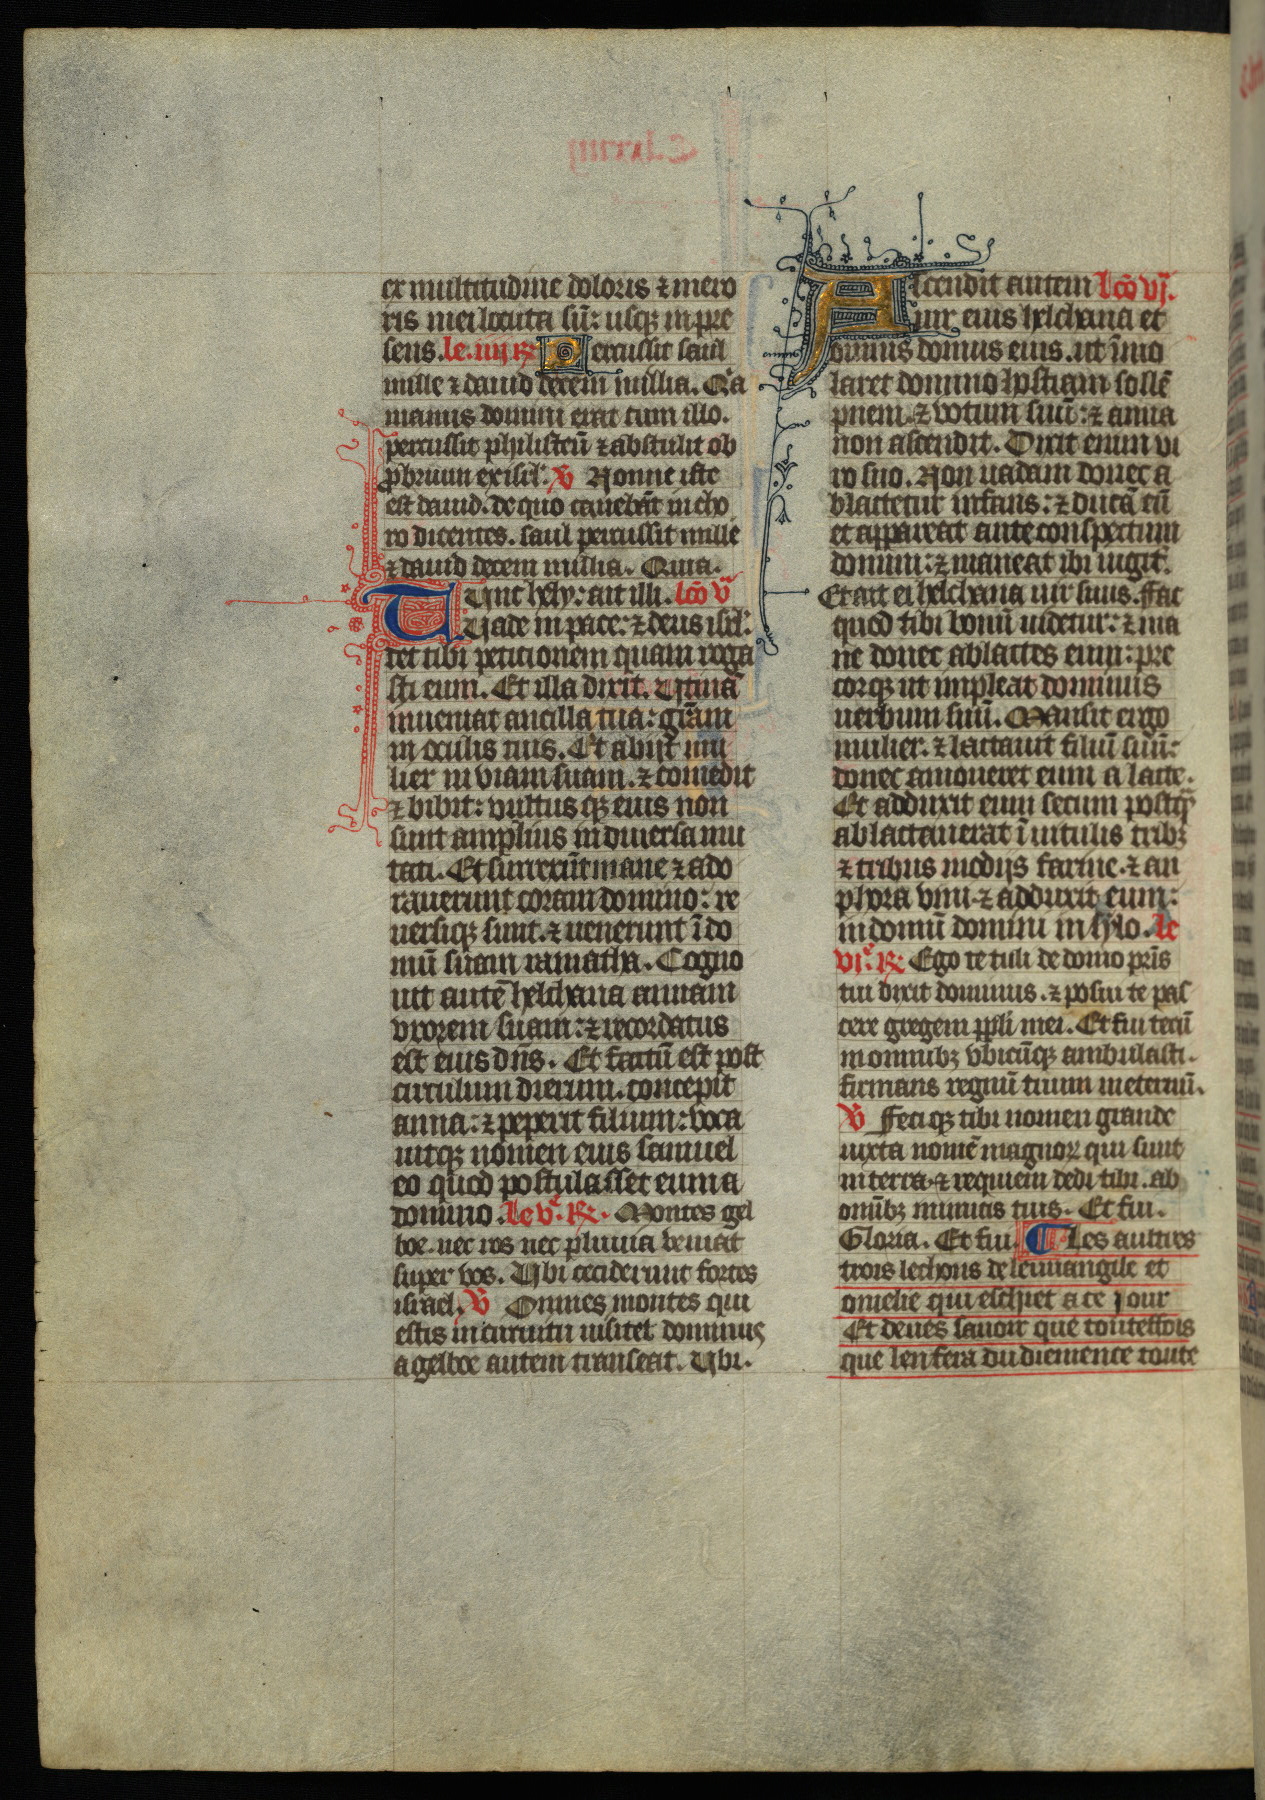 ex multitudine doloris ⁊ mero
ris mei locuta sū: usq; in pre
sens. le. iiij ℟ Percussit saul
mille ⁊ dauid decem millia. Qͥa
manus domini erat cum illo.
percussit philisteū ⁊ abstulit ob
probrium ex isrl̄. ℣ Nonne iste
est dauid. de quo canebāt in cho
ro dicentes. saul percussit mille
⁊ dauid decem millia. Quia.
Tunc hely: ait illi. lcō vͣ
Uade in pace: ⁊ deus isrl̄:
det tibi petitionem quam roga
sti eum. Et illa dixit. Utinā
inueniat ancilla tua: grām
in oculis tuis. Et abijt mu
lier in viam suam. ⁊ comedit
⁊ bibit: vultus q; eius non
sunt amplius in diuersa mu
tati. Et surrexerūt mane ⁊ ado
rauerunt coram domino: re
uersiq; sunt. ⁊ uenerunt ī do
mū suam ramatha. Cogno
uit autē helchana annam
vxorem suam: ⁊ recordatus
est eius dn̄s. Et factū est post
circulum dierum. concepit
anna: ⁊ peperit filium: voca
uitq; nomen eius samuel
eo quod postulasset eum a
domino. le vͤ. ℟. Montes gel
boe. nec ros nec pluuia veniat
super vos. Ubi ceciderunt fortes
israel. ℣ Omnes montes qui
estis in circuitu uisitet dominus
a gelboe autem transeat. Ubi.
Ascendit autem lcō vj.
uir eius helchana et
omnis domus eius. ut īmo
laret domino hostiam sollē
pnem. ⁊ votum suū: ⁊ anna
non ascendit. Dixit enim vi
ro suo. Non uadam donec a
blactetur infans: ⁊ ducā eū
et appareat ante conspectum
domini: ⁊ maneat ibi iugit̄.
Et ait ei helchana uir suus. Fac
quod tibi bonū uidetur: ⁊ ma
ne donec ablactes eum: pre
corq; ut impleat dominus
uerbum suū. Mansit ergo
mulier. ⁊ lactauit filiū suū:
donec amoueret eum a lacte.
Et adduxit eum secum postq̄
ablactauerat ī uitulis trib;
⁊ tribus modijs farine. ⁊ an
phora vini. ⁊ adduxit eum:
in domū domini in sylo. le
vjͤ. ℟. Ego te tuli de domo pr̄is
tui dixit dominus. ⁊ posui te pas
cere gregem ppl̄i mei. Et fui tecū
in omnib; vbicūq; ambulasti.
firmans regnū tuum in eternū.
℣ Feciq; tibi nomen grande
iuxta nomē magnoꝝ qui sunt
in terra. ⁊ requiem dedi tibi. ab
omīb; inimicis tuis. Et fui.
Gloria. Et fui. ¶ Les aultres
trois lechons de leuuangile et
omelie qui eschiet a ce jour
Et deues sauoir que touteffois
que len fera du diemence toute